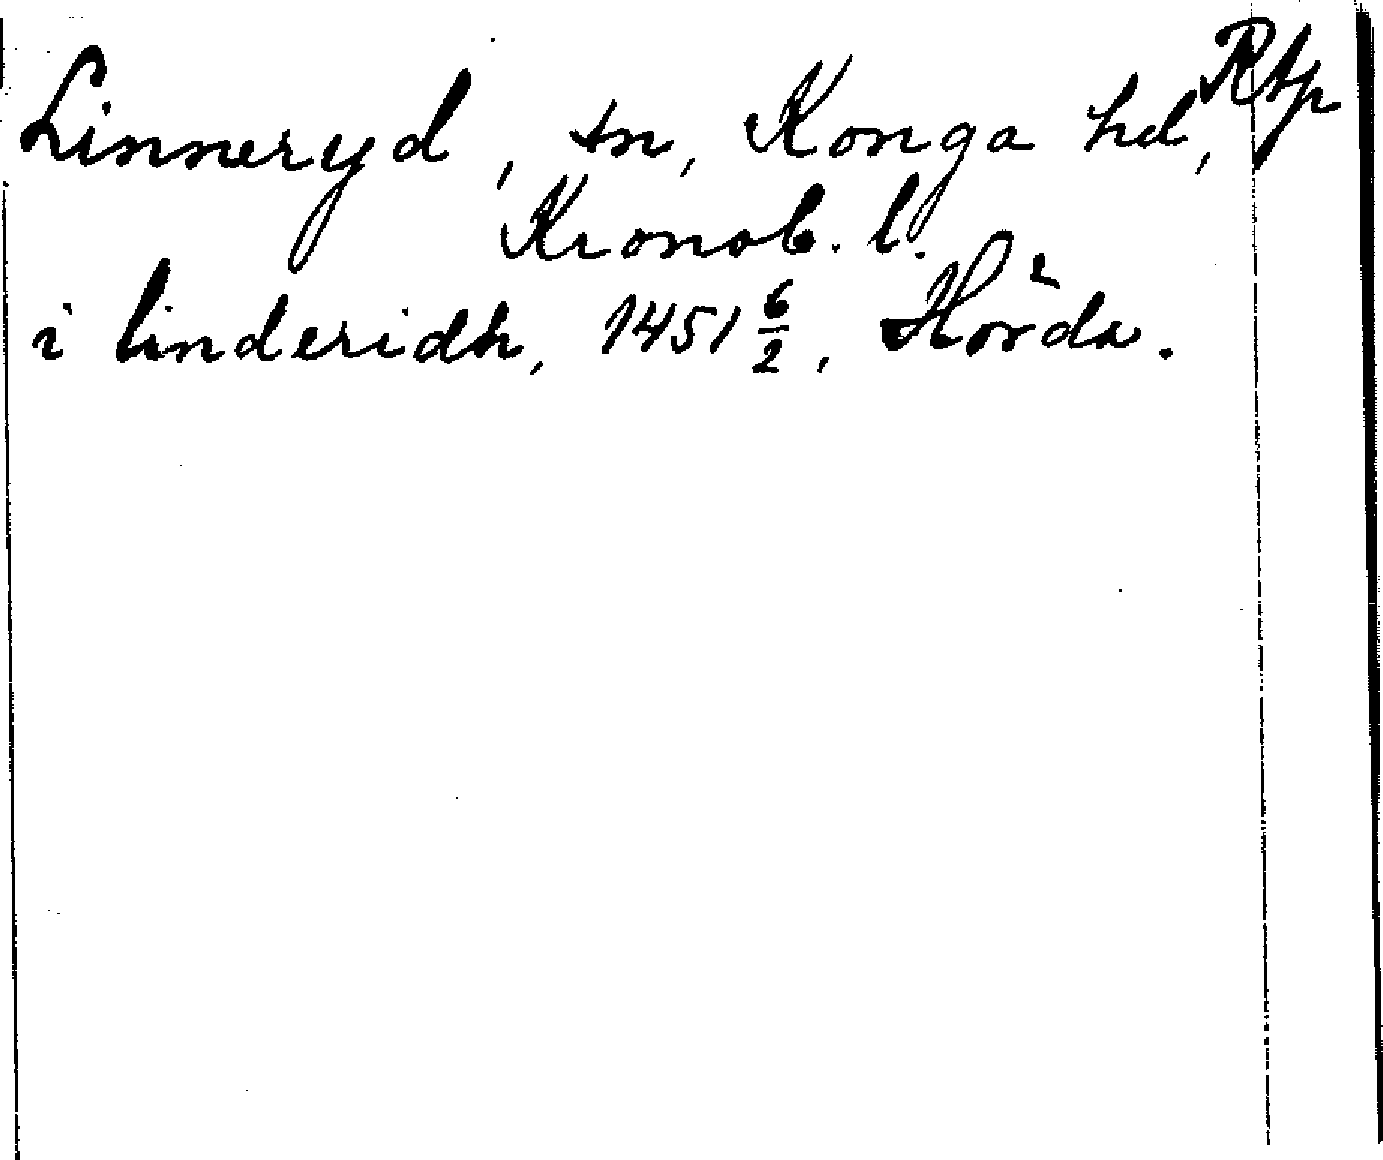 Rtp
Linneryd, sn, Konga hd,
Kronob. l.
i linderidh, 1451 6/2, Hörda.